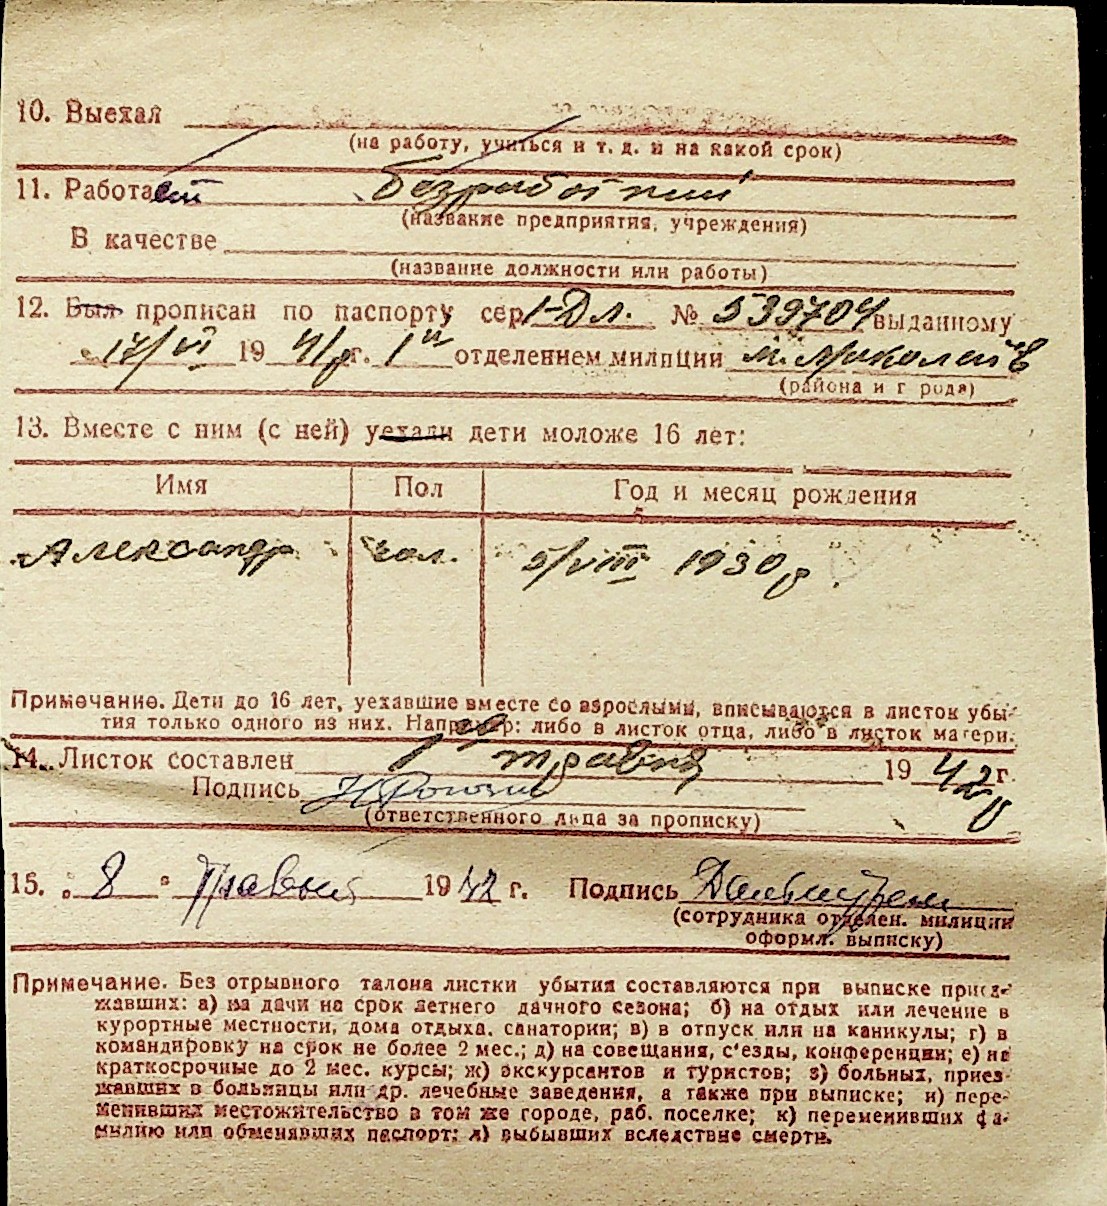 10. Выехал
(на работу, учиться и т. д. и на какой срок)
11. Работает безработний
(название предприятия, учреждения)
В качестве
(название должности или работы)
12. Был прописан по паспорту сер. I-Дл. № 539704 выданному
17/VI 19 41 р г. 1 отделением милиции м. Миколаїв
(района и г рода)
13. Вместе с ним (с ней) уехали дети моложе 16 лет:
Имя Пол Год и месяц рождения
Александр чол. 5/VIII 1930 р.
Примечание. Дети до 16 лет, уехавшие вместе со взрослыми, вписываются в листок убы-
тия только одного из них. Например: либо в листок отца, либо в листок матери.
14. Листок составлен 1 травня 19 42 г. р
Подпись
(ответственного лица за прописку)
15. „ 8 " травня 19 42 г. Подпись
(сотрудника отделен. милиции
оформ. выписку)
Примечание. Без отрывного талона листки убытия составляются при выписке приез-
жавших: а) на дачи на срок летнего дачного сезона; б) на отдых или лечение в
курортные местности, дома отдыха, санатории; в) в отпуск или на каникулы; г) в
командировку на срок не более 2 мес.; д) на совещания, с'езды, конференции; е) на
краткосрочные до 2 мес. курсы; ж) экскурсантов и туристов; з) больных, приез-
жавших в больницы или др. лечебные заведения, а также при выписке; и) пере-
менивших местожительство в том же городе, раб. поселке; к) переменивших фа-
милию или обменявших паспорт; л) выбывших вследствие смерти.